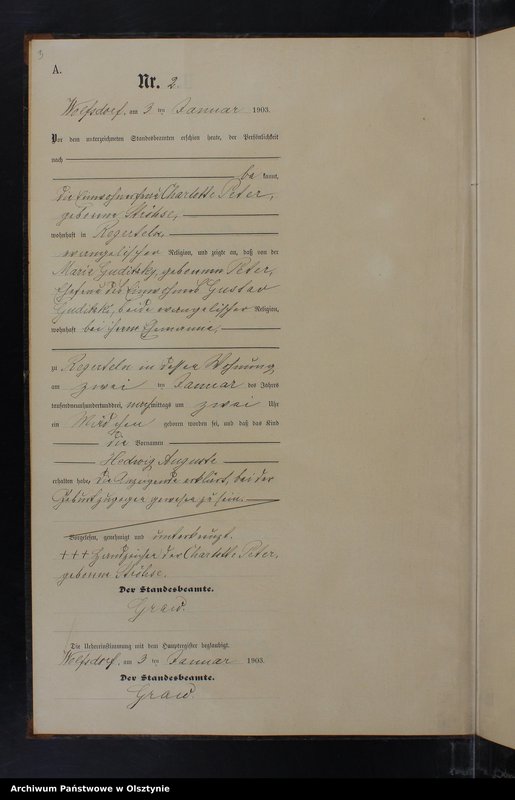 A.
Nr. 2
Wolfsdorf, am 3 ten Januar 1903.
Vor dem unterzeichneten Standesbeamten erschien heute, der Persönlichkeit
nach
be kannt,
die Einwohnerfrau Charlotte Peter,
geborene Ströhse,
wohnhaft in Regerteln,
evangelischer Religion, und zeigte an, daß von der
Marie Guditzky, geborenen Peter,
Ehefrau des Einwohners Gustav
Guditzki, beide evangelischer Religion,
wohnhaft bei ihrem Ehemanne,
zu Regerteln in dessen Wohnung
am zwei ten Januar des Jahres
tausendneunhundertunddrei, nachmittags um zwei Uhr
ein Mädchen geboren worden sei, und daß das Kind
die Vornamen
Hedwig Auguste
erhalten habe, die Anzeigende erklärt, bei der
Geburt zugegen gewesen zu sein.
Vorgelesen, genehmigt und unterkreuzt.
+++ Handzeichen der Charlotte Peter,
geborene Ströhse.
Der Standesbeamte.
Graw.
Die Uebereinstimmung mit dem Hauptregister beglaubigt.
Wolfsdorf, am 3 ten Januar 1903.
Der Standesbeamte.
Graw.
Archiwum Państwowe w Olsztynie